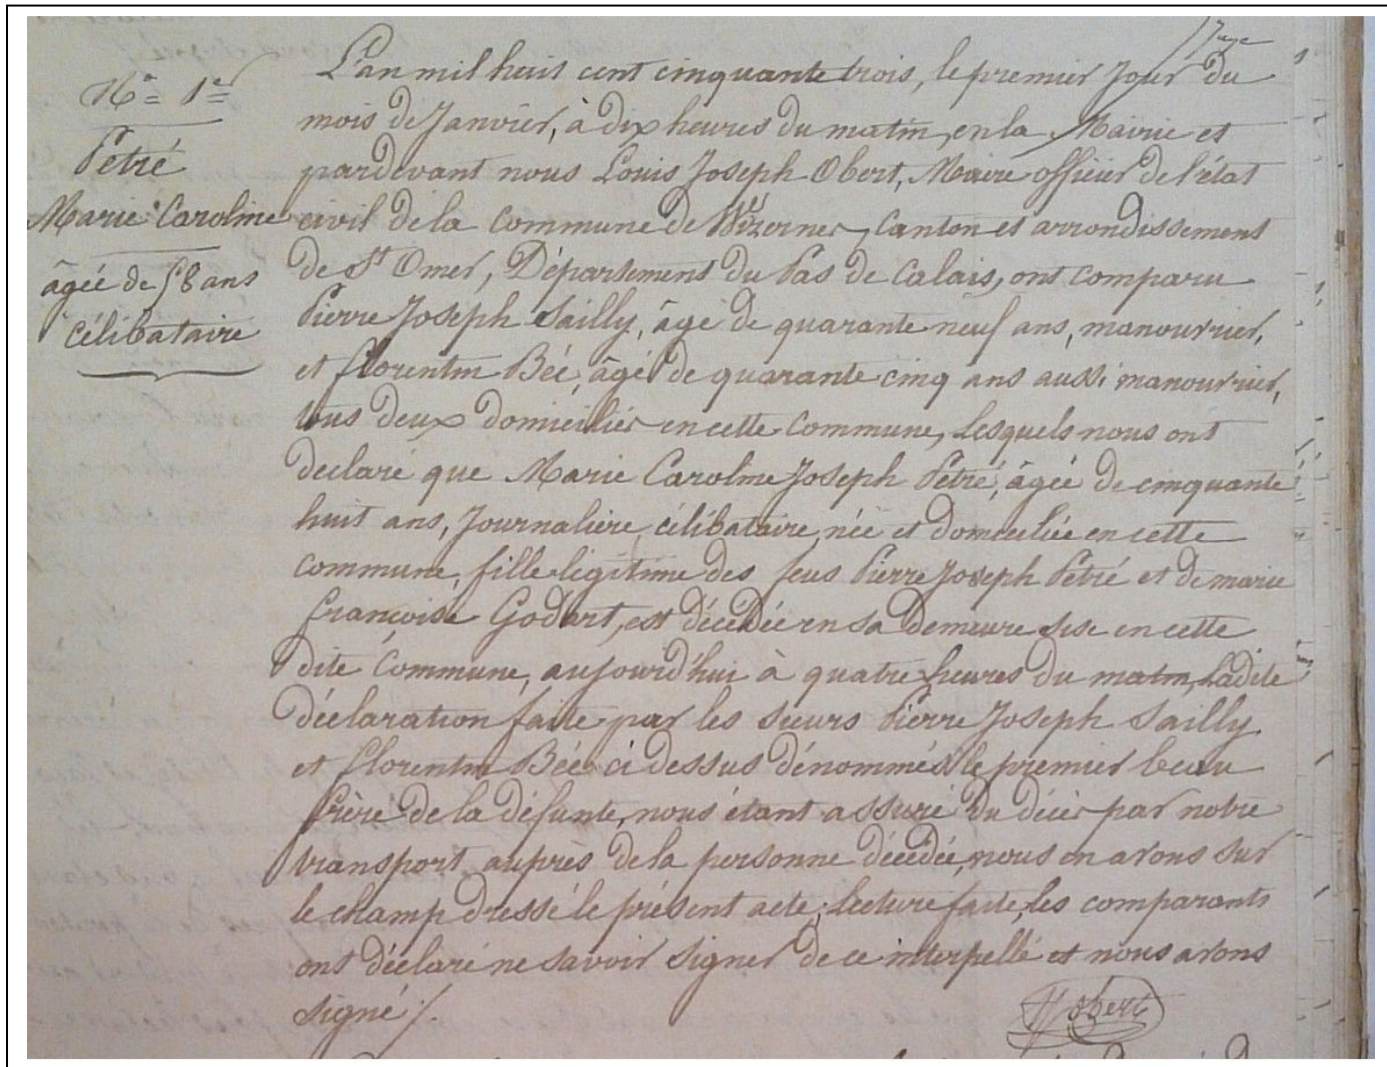 N.º 1.er
Petré
Marie Caroline
âgée de 58 ans
célibataire
L'an mil huit cent cinquante trois, le premier Jour du
mois de Janvier, à dix heures du matin, en la Mairie et
pardevant nous Louis Joseph Obert, Maire officier de l'état
civil de la Commune de Wizernes, Canton et arrondissement
de St Omer, Département du Pas de Calais, ont comparu
Pierre Joseph Sailly, âgé de quarante neuf ans, manouvrier,
et florentin Bée, âgé de quarante cinq ans aussi manouvrier,
tous deux domiciliés en cette Commune, Lesquels nous ont
declaré que Marie Caroline Joseph Petré, âgée de cinquante
huit ans, Journalière, célibataire, née et domiciliée en cette
commune, fille légitime des feus Pierre Joseph Petré et de marie
françoise Godart, est décédée en sa demeure sise en cette
dite Commune, aujourd'hui à quatre heures du matin, Ladite
déclaration faite par les sieurs Pierre Joseph Sailly
et florentin Bée ci dessus dénommés le premier beau
frère de la défunte, nous étant assuré du décès par notre
transport auprès de la personne décédée, nous en avons sur
le champ dressé le présent acte; Lecture faite, les comparants
ont déclaré ne savoir signer de ce interpellé et nous avons
signé ./.
Obert